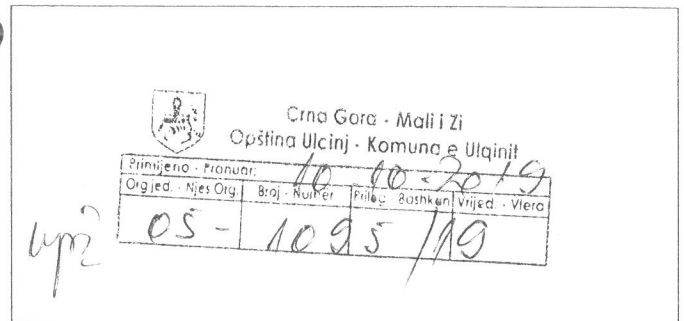 Crna Gora - Mali i Zi
Opština Ulcinj - Komuna e Ulqinit
Primljeno - Pranuar: 10-10-2019
Org jed. - Njes Org. Broj - Numër Prilog - Bashkan Vrijed. - Vlera
OŠ - 1095/19